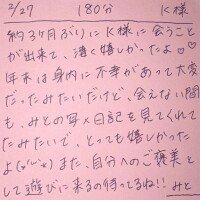 2/27 180分 K様
約3ヶ月ぶりにK様に会うこと
が出来て、凄く嬉しかったよ♡♡
年末は身内に不幸があって大変
だったみたいだけど、会えない間
も、みとの写メ日記を見てくれて
たみたいで、とっても嬉しかった
よ(//∇//) また、自分へのご褒美と
して遊びに来るの待ってるね!! みと